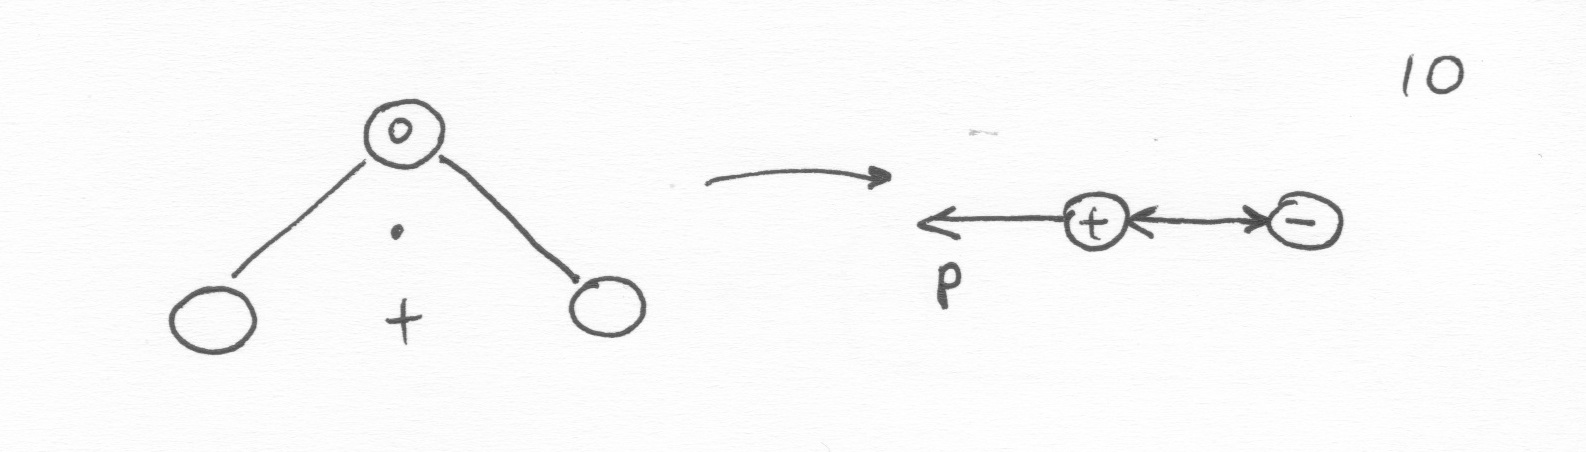 10
o
+ -
p
+